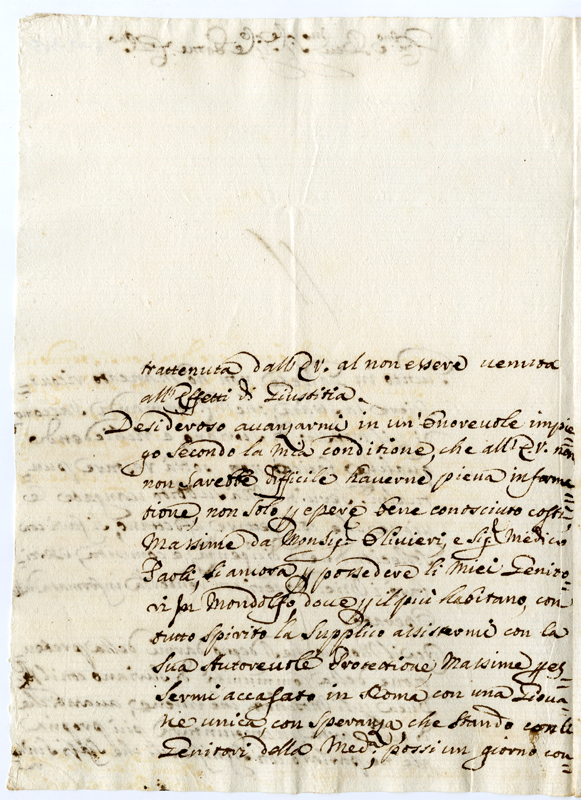 trattenuta dall'Ev. al non essere venuta
all'Effetti di Giustitia.
Desideroso avanzarmi in un' honorevole impie=
go secondo la mia conditione, che all'Ev. non
non sarebbe difficile haverne piena informa=
tione, non solo p essere bene conosciuto costì
Massime da Monsig.r Olivieri, e Sig.r Medico
Paoli, si ancora p possedere li miei Genito=
ri in Mondolfo dove p il più habitano, con
tutto spirito la supplico assistermi con la
sua Autorevole Protectione, Massime p es=
sermi accasato in Roma con una Giova=
ne unica, con speranza, che stando con li
Genitori della Med.a, possi un giorno con=